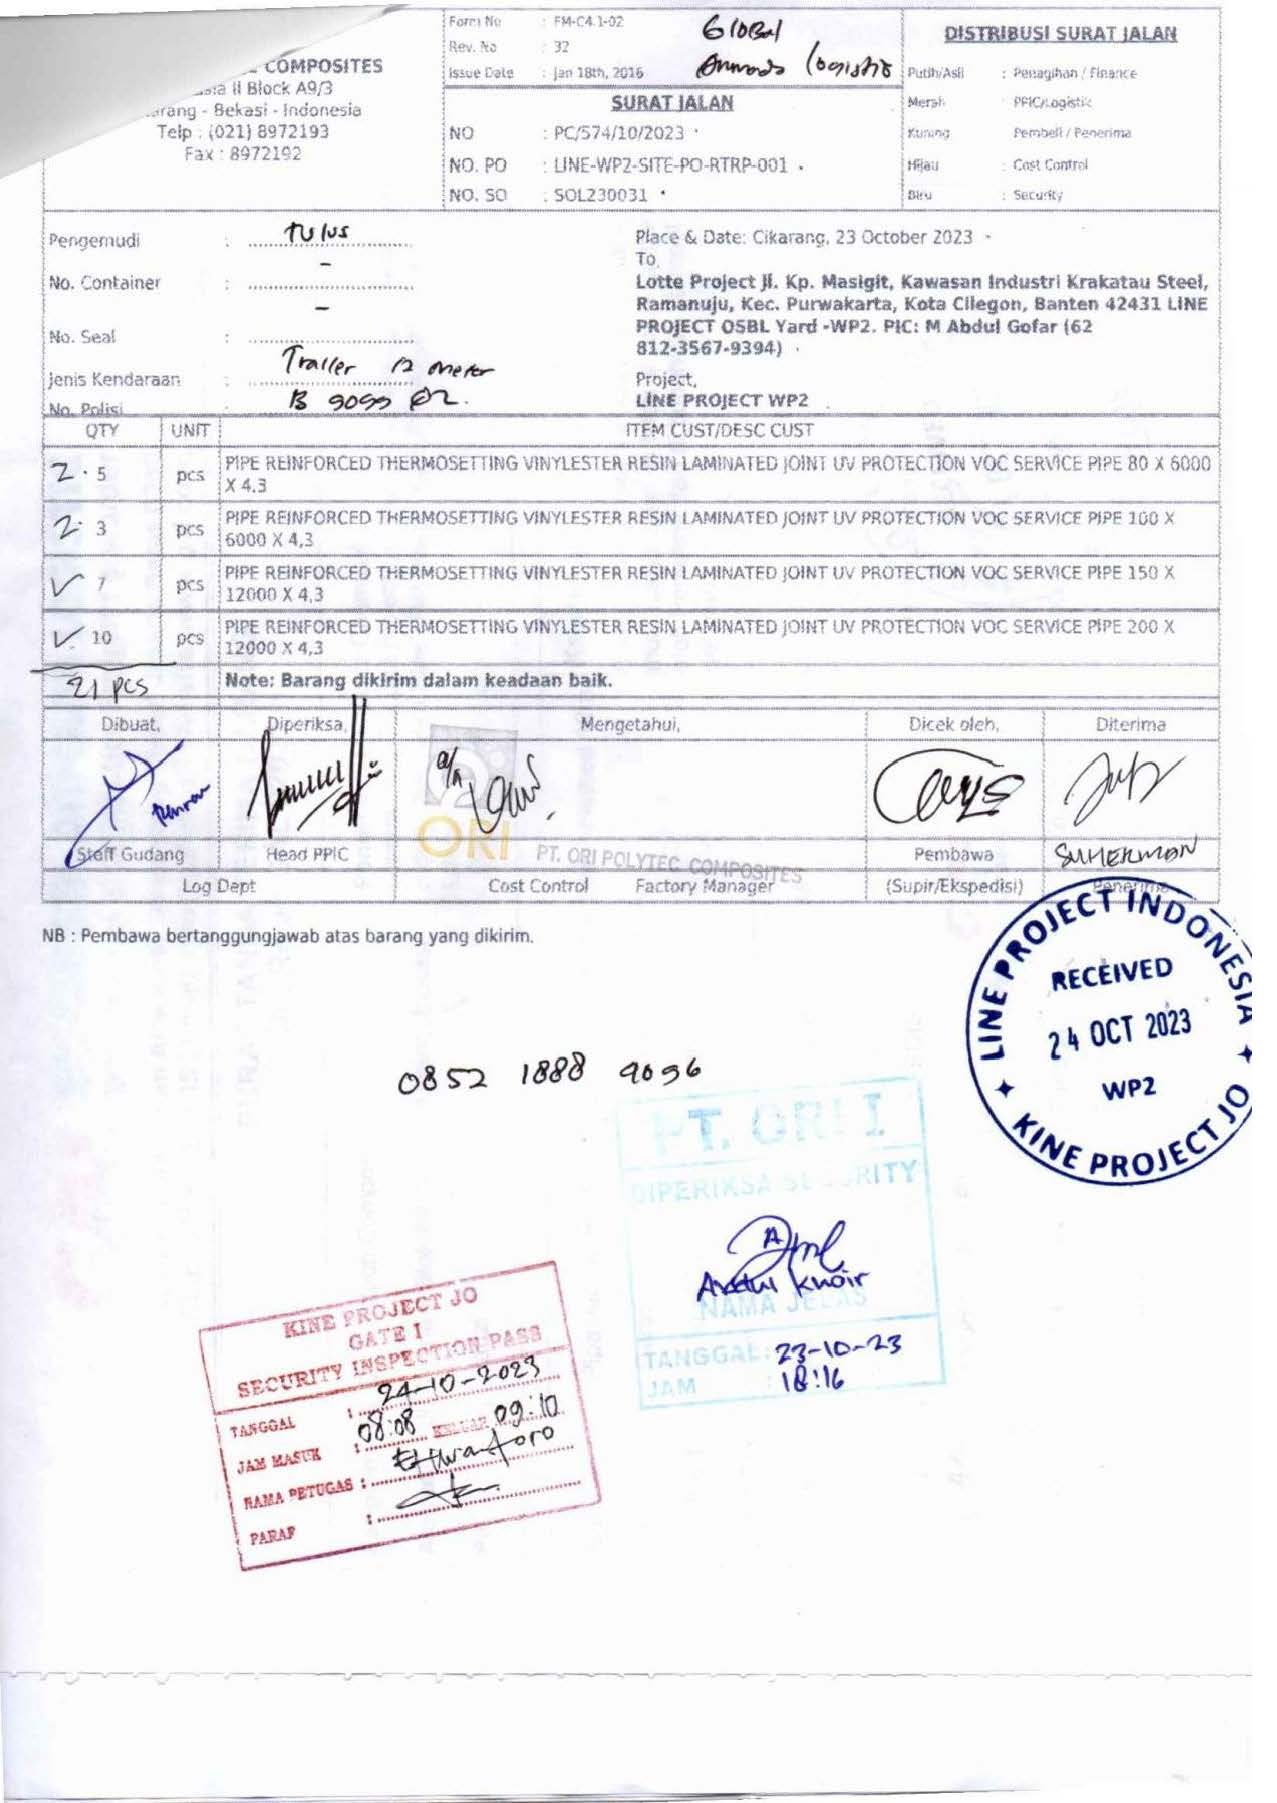 COMPOSITES
II Block A9/3
- Bekasi - Indonesia
Telp : (021) 8972193
Fax : 8972192
Form No : FM-C4.1-02
Rev. No : 32
Issue Date : Jan 18th, 2016
Global
Logistic
SURAT JALAN
NO : PC/574/10/2023
NO. PO : LINE-WP2-SITE-PO-RTRP-001
NO. SO : SOL230031
DISTRIBUSI SURAT JALAN
Putih/Asli : Penagihan / Finance
Merah : PPIC/Logistik
Kuning : Pembeli / Penerima
Hijau : Cost Control
Biru : Security
Pengemudi : Tulus
No. Container : -
No. Seal : -
Jenis Kendaraan : Trailer 12 meter
No. Polisi : B 9099
Place & Date: Cikarang, 23 October 2023
To,
Lotte Project Jl. Kp. Masigit, Kawasan Industri Krakatau Steel,
Ramanuju, Kec. Purwakarta, Kota Cilegon, Banten 42431 LINE
PROJECT OSBL Yard -WP2. PIC: M Abdul Gofar (62
812-3567-9394)
Project,
LINE PROJECT WP2
QTY UNIT ITEM CUST/DESC CUST
2 · 5 pcs PIPE REINFORCED THERMOSETTING VINYLESTER RESIN LAMINATED JOINT UV PROTECTION VOC SERVICE PIPE 80 X 6000
X 4.3
2 · 3 pcs PIPE REINFORCED THERMOSETTING VINYLESTER RESIN LAMINATED JOINT UV PROTECTION VOC SERVICE PIPE 100 X
6000 X 4,3
✓ 7 pcs PIPE REINFORCED THERMOSETTING VINYLESTER RESIN LAMINATED JOINT UV PROTECTION VOC SERVICE PIPE 150 X
12000 X 4,3
✓ 10 pcs PIPE REINFORCED THERMOSETTING VINYLESTER RESIN LAMINATED JOINT UV PROTECTION VOC SERVICE PIPE 200 X
12000 X 4,3
21 pcs Note: Barang dikirim dalam keadaan baik.
Dibuat, Diperiksa, Mengetahui, Dicek oleh, Diterima
a/n
ORI
PT. ORI POLYTEC COMPOSITES
SUHERMAN
Staff Gudang Head PPIC Pembawa
Log Dept Cost Control Factory Manager (Supir/Ekspedisi) Penerima
NB : Pembawa bertanggungjawab atas barang yang dikirim.
LINE PROJECT INDONESIA
RECEIVED
24 OCT 2023
WP2
KINE PROJECT JO
0852 1888 9096
PT. ORI I
DIPERIKSA SECURITY
Abdul Khoir
NAMA JELAS
TANGGAL : 23-10-23
JAM : 18:16
KINE PROJECT JO
GATE I
SECURITY INSPECTION PASS
TANGGAL : 24-10-2023
JAM MASUK : 08:08 KELUAR 09:10
NAMA PETUGAS :
PARAF :